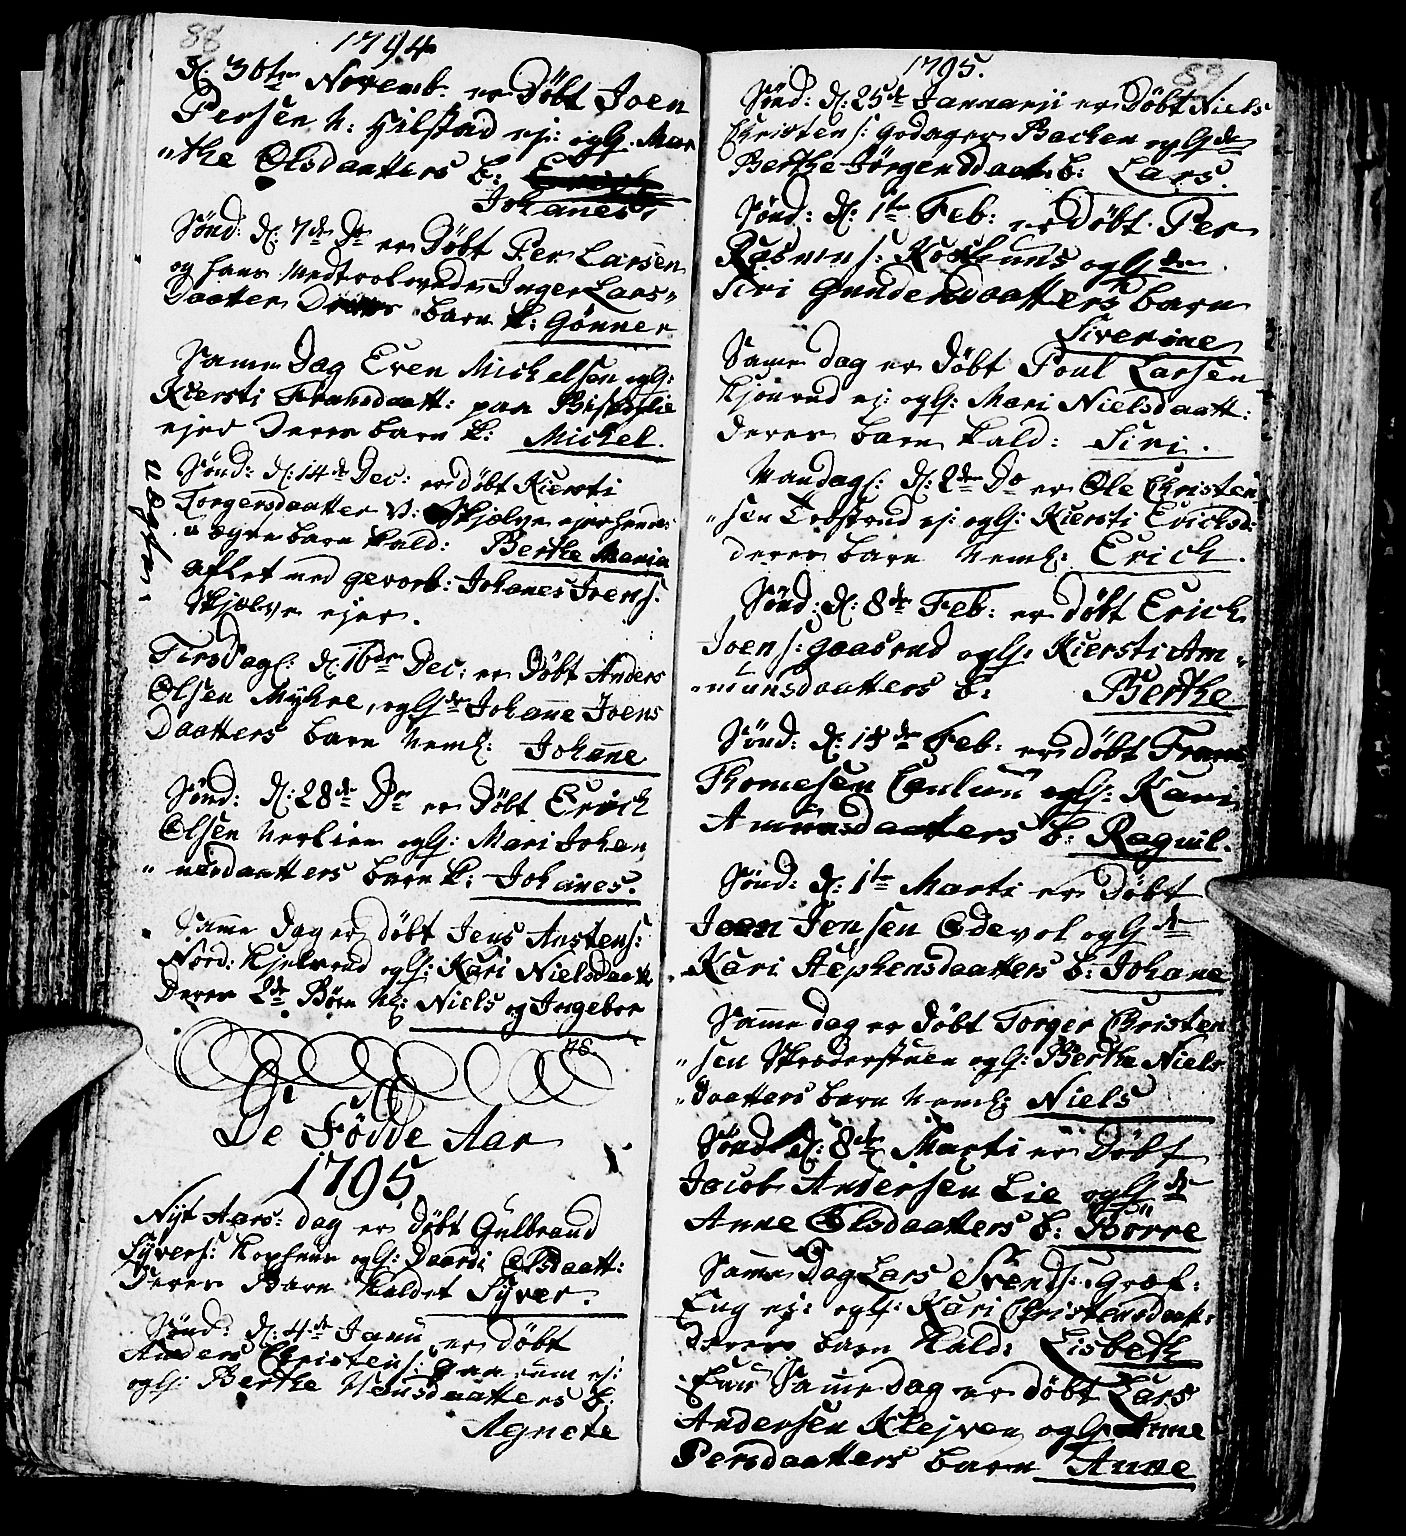 88
1794
d: 30ten Novemb: er Döbt Joen
Persen N: Hilstad ej: oglH. Mar
"the Olsdaatters b:
Johanes.
Sönd: d: 7de Do er Döbt Per Larsen
og hans Medtrolovede Inger Lars"
Daatter barn k: Gönner
Samme Dag Even Michelsen oglH:
Kiersti Fransdaatt: paa
ejer Deres barn k: Michel.
Sönd: d: 14de Dec: er döbt Kiersti
Torgersdaatter V: Skjolve ejer hendes
u ægte barn kald: Berthe Maria
uægte.
aflet med gevorb: Johanes Ivers:
Skjolve ejer.
Tirsdag: d: 16de Dec: er Döbt Anders
Olsen Myhre, oglHde Johanne Joens
Daatters barn Neml: Johanne
Sönd: d: 28de Do er Döbt Erich
Olsen Verlien oglH: Mari Johan
"nesdaatters barn k: Johanes.
Samme Dag er döbt Jens Austens:
Nord: Hjelvrud oglH: Kari Nielsdaatt
Deres 2de Börn Nl: Niels og Ingebor
De Födde Aar
1795
Nyt Aars: dag er döbt Gulbrand
Syvers: oglH: Olsdaatt:
Deres Barn kaldet Syver.
Sönd: d: 4de Janu er döbt
Anders Christens: ej:
oglH: Berthe Hansdaatters b:
Agnete
1795.
89
Sönd: d: 25de Januarii er Döbt Niels
Christens: Godager Backen oglHde
Berthe Jörgensdaat: b: Lars.
Sönd: d: 1te Feb: er Döbt Per
Rasmus: oglHde
Siri Gundersdaatters barn
Siverine
Samme dag er Döbt Poul Larsen
ej: oglH: Mari Nielsdaatt:
deres barn kald: Siri.
Mandag: d: 2de Do er Ole Christen
"sen ej: oglH: Kiersti Ericksd:
deres barn Neml: Erich.
Sönd: d: 8de Feb: er döbt Erich
Joens: Gaasrud oglH: Kiersti Am
"munsdaatters b: Berthe
Sönd: d: 15de Feb: er döbt Frans
Thomesen oglH: Kari
Amunsdaatters b: Raguil.
Sönd: d: 1te Marti er Döbt
Joen Jensen Odevol oglHde
Kari Stephensdaatters b: Johane
Samme dag er döbt Torger Christen
"sen Skrederstuen oglH: Berthe Niels
"daatters barn Neml: Niels
Sönd d: 8de Marti er Döbt
Jacob Andersen Lie oglHde
Anne Olsdaatters b: Börre
Samme Dag Lars Svends: Græs:
Eng ej: oglH: Kari Christensdaat:
deres barn kald: Lisbeth
Samme dag er döbt Lars
Andersen Klejven oglH Anne
Persdaatters barn Anne